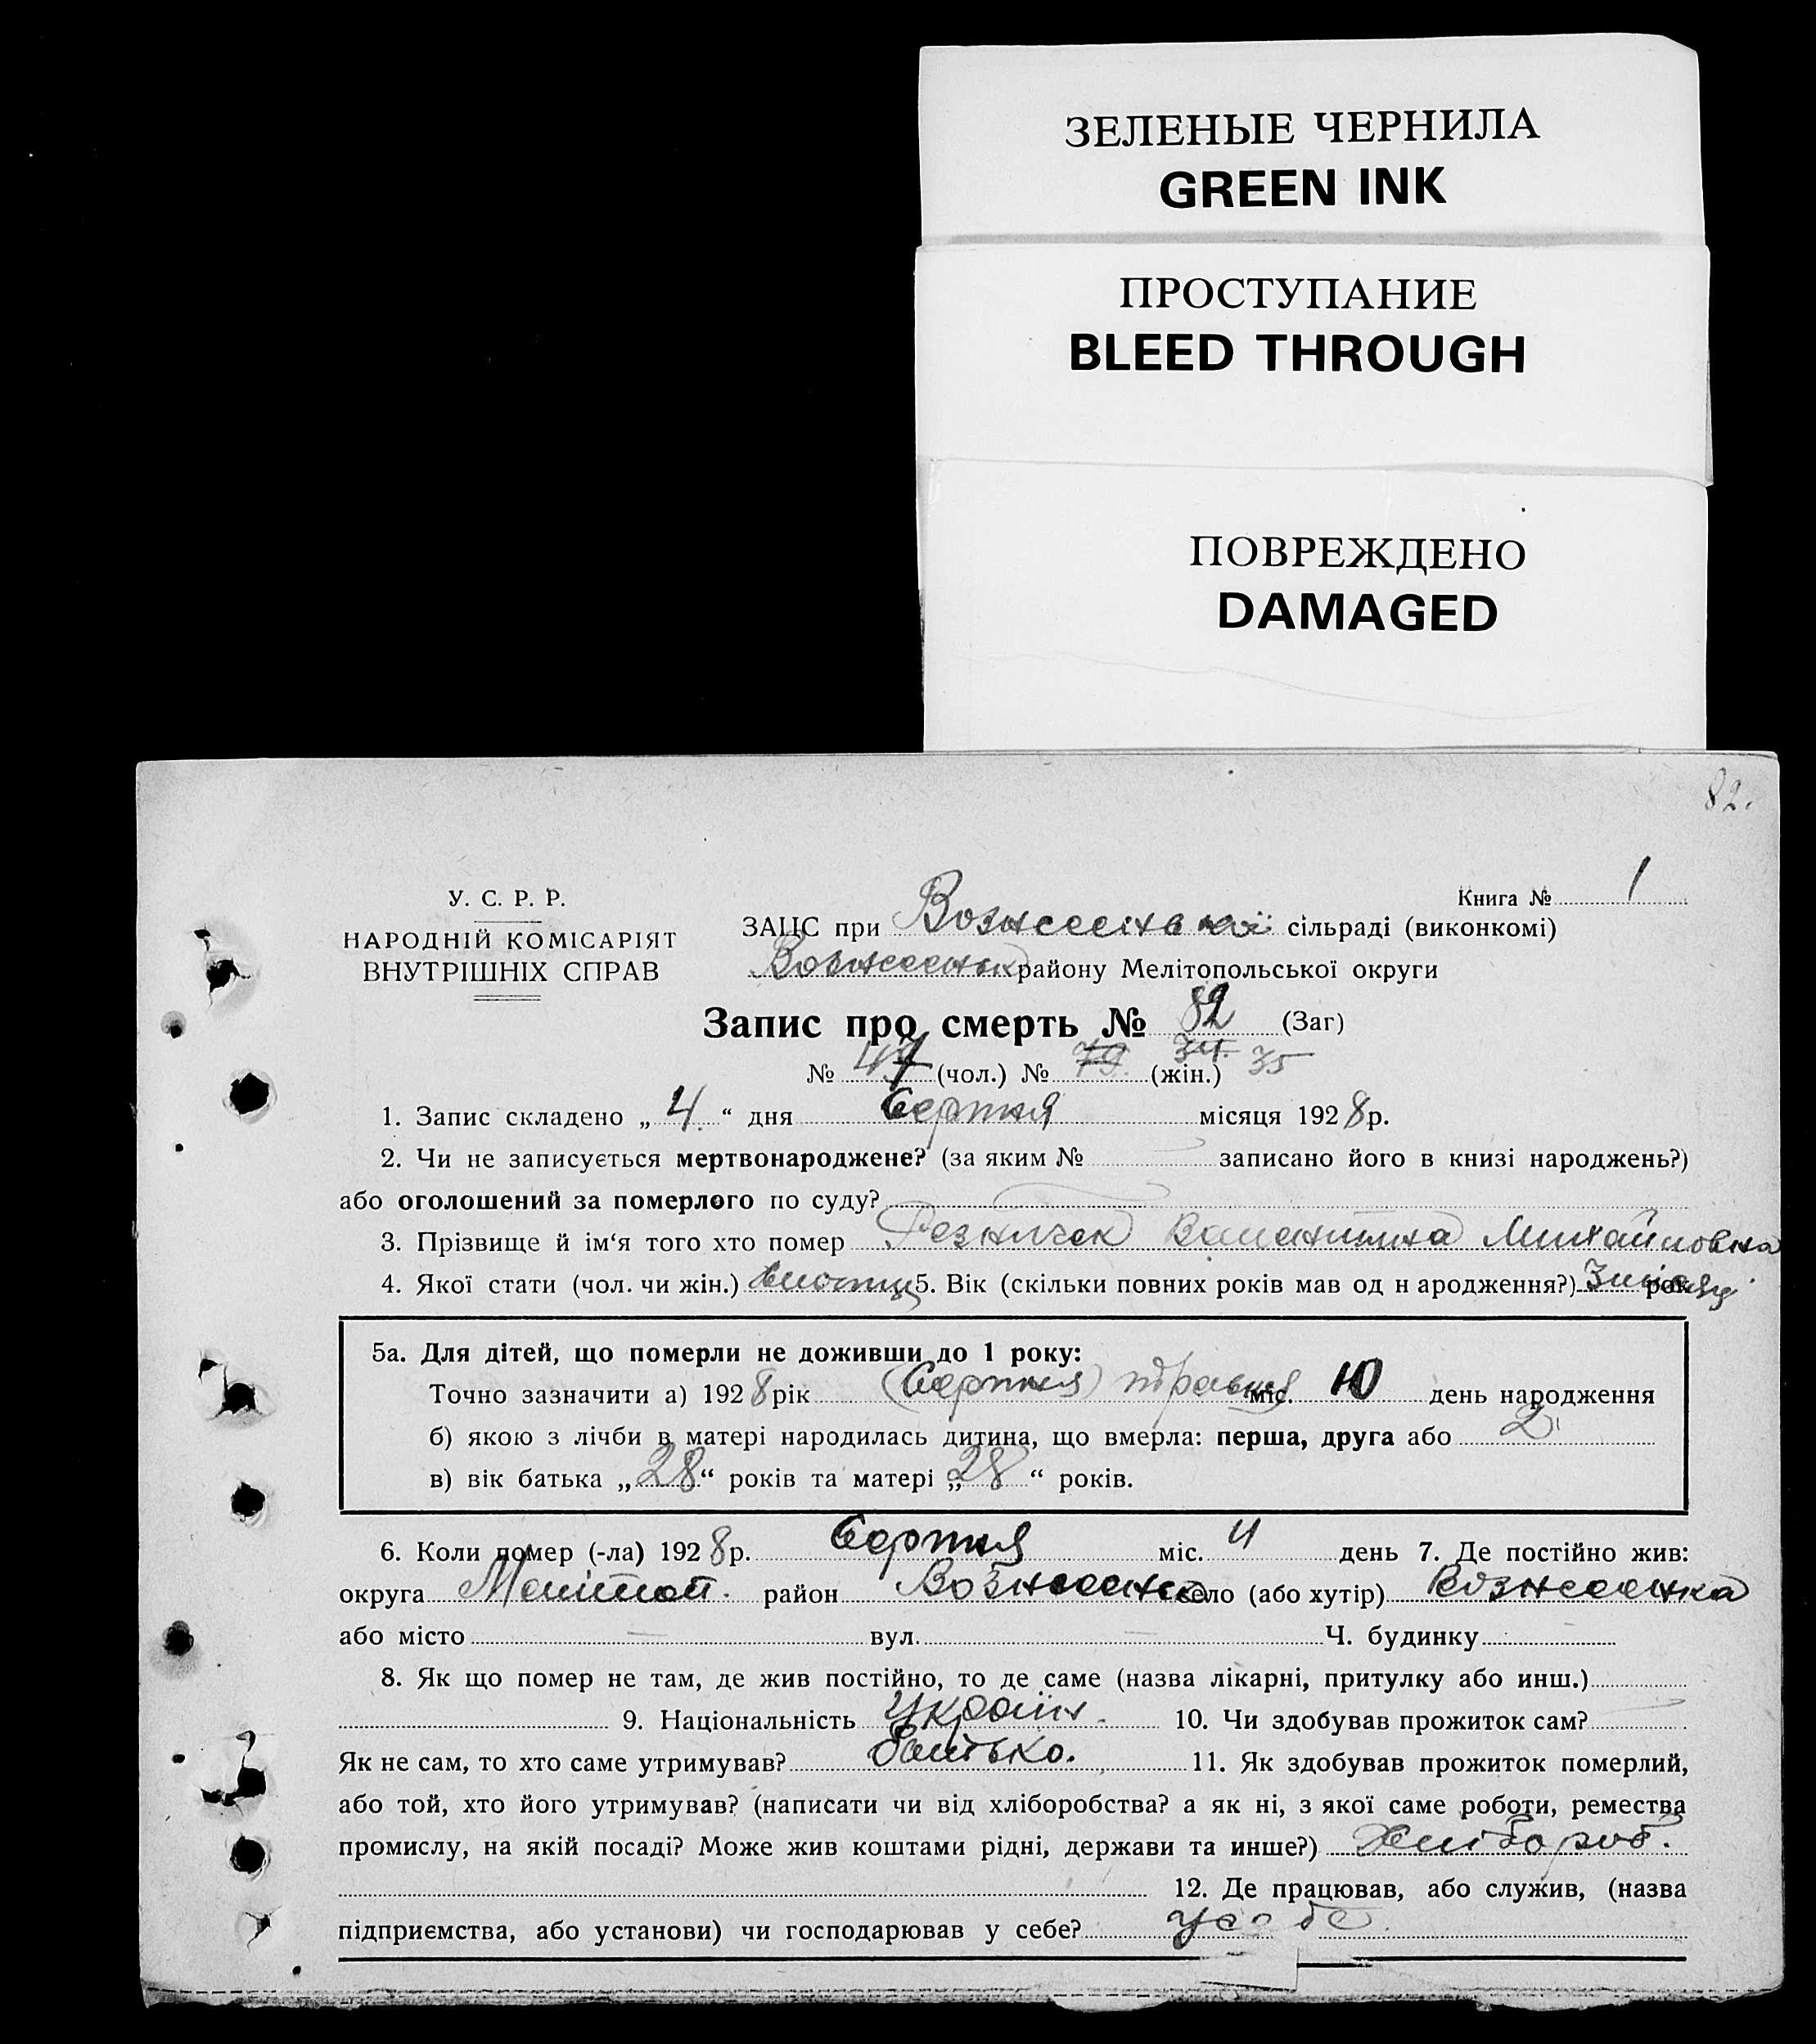 ЗЕЛЕНЫЕ ЧЕРНИЛА
GREEN INK
ПРОСТУПАНИЕ
BLEED THROUGH
ПОВРЕЖДЕНО
DAMAGED
82.
У. С. Р. Р.
НАРОДНІЙ КОМІСАРІЯТ
ВНУТРІШНІХ СПРАВ
Книга № 1
ЗАЦС при сільраді (виконкомі)
району Мелітопольської округи
Запис про смерть № 82 (Заг)
№ 47 (чол.) № 79. (жін.) 34. 35
1. Запис складено „ 4 “ дня Серпня місяця 1928 р.
2. Чи не записується мертвонароджене? (за яким № записано його в книзі народжень?)
або оголошений за померлого по суду?
3. Прізвище й ім‘я того хто помер Валентина Михайловна
4. Якої стати (чол. чи жін.) 5. Вік (скільки повних років мав од н ародження?) 3 місяці рок
5а. Для дітей, що померли не доживши до 1 року:
Точно зазначити а) 1928 рік (Серпня) травня міс. 10 день народження
б) якою з лічби в матері народилась дитина, що вмерла: перша, друга або 2
в) вік батька „ 28 “ років та матері „ 28 “ років.
6. Коли помер (-ла) 1928 р. Серпня міс. 4 день 7. Де постійно жив:
округа Мелітоп. район Вознесенка село (або хутір) Вознесенка
або місто — вул. — Ч. будинку
8. Як що помер не там, де жив постійно, то де саме (назва лікарні, притулку або инш.)
9. Національність україн. 10. Чи здобував прожиток сам?
Як не сам, то хто саме утримував? батько. 11. Як здобував прожиток померлий,
або той, хто його утримував? (написати чи від хліборобства? а як ні, з якої саме роботи, ремества
промислу, на якій посаді? Може жив коштами рідні, держави та инше?) Хлібороб.
12. Де працював, або служив, (назва
підприємства, або установи) чи господарював у себе? у себе